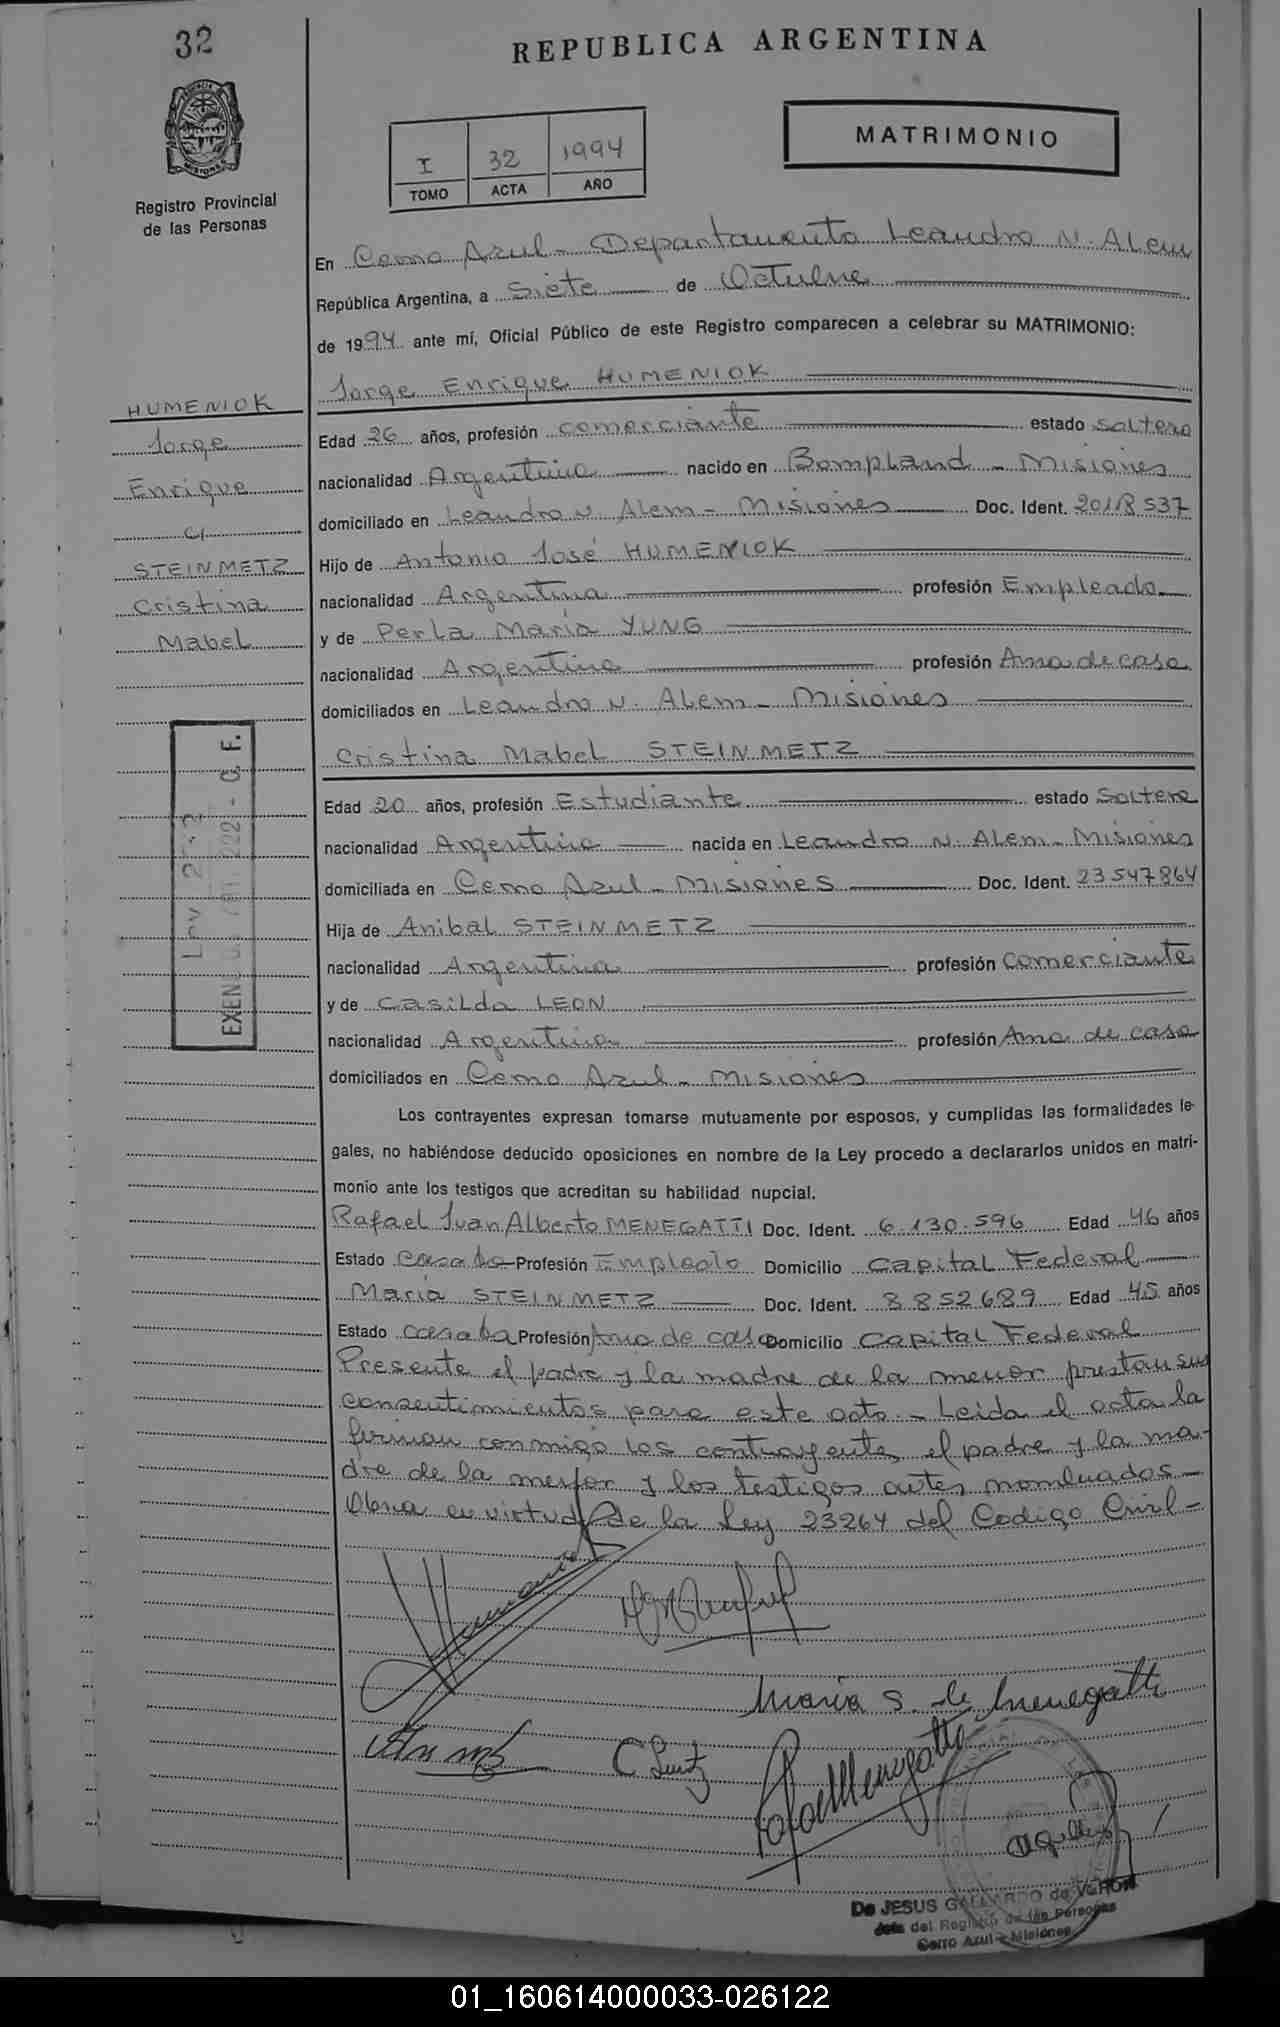 32
REPUBLICA ARGENTINA
PROVINCIA DE
MISIONES
Registro Provincial
de las Personas
I 32 1994
TOMO ACTA AÑO
MATRIMONIO
En Cerro Azul - Departamento Leandro N. ALem
República Argentina, a Siete de Octubre
de 1994 ante mí, Oficial Público de este Registro comparecen a celebrar su MATRIMONIO:
Jorge Enrique HUMENIOK
HUMENIOK
Jorge
Enrique
c/
STEINMETZ
Cristina
Mabel
Edad 26 años, profesión comerciante estado soltero
nacionalidad Argentina nacido en Bompland - Misiones
domiciliado en Leandro N. Alem - Misiones Doc. Ident. 20118537
Hijo de Antonio José HUMENIOK
nacionalidad Argentina profesión Empleado
y de Perla María YUNG
nacionalidad Argentina profesión Ama de casa
domiciliados en Leandro N. ALem - Misiones
Cristina Mabel STEINMETZ
Edad 20 años, profesión Estudiante estado Soltera
nacionalidad Argentina nacida en Leandro N. ALem - Misiones
domiciliada en Cerro Azul - Misiones Doc. Ident. 23547864
Hija de Anibal STEINMETZ
nacionalidad Argentina profesión Comerciante
y de Casilda LEON
nacionalidad Argentina profesión Ama de casa
domiciliados en Cerro Azul - Misiones
Los contrayentes expresan tomarse mutuamente por esposos, y cumplidas las formalidades le-
gales, no habiéndose deducido oposiciones en nombre de la Ley procedo a declararlos unidos en matri-
monio ante los testigos que acreditan su habilidad nupcial.
Rafael Juan Alberto MENEGATTI Doc. Ident. 6.130.596 Edad 46 años
Estado Casado Profesión Empleado Domicilio Capital Federal
María STEINMETZ Doc. Ident. 8.852689 Edad 45 años
Estado casada Profesión Ama de casa Domicilio Capital Federal
Presente el padre y la madre de la menor prestan sus
consentimientos para este acto. - Leida el acta la
firman conmigo los contrayentes, el padre y la ma-
dre de la menor y los testigos antes nombrados -
Obra en virtud de la Ley 23264 del Codigo Civil -
María S. de Menegatti
De JESUS GALLARDO de VERON
Jefe del Registro de las Personas
Cerro Azul - Misiones
01_160614000033-026122